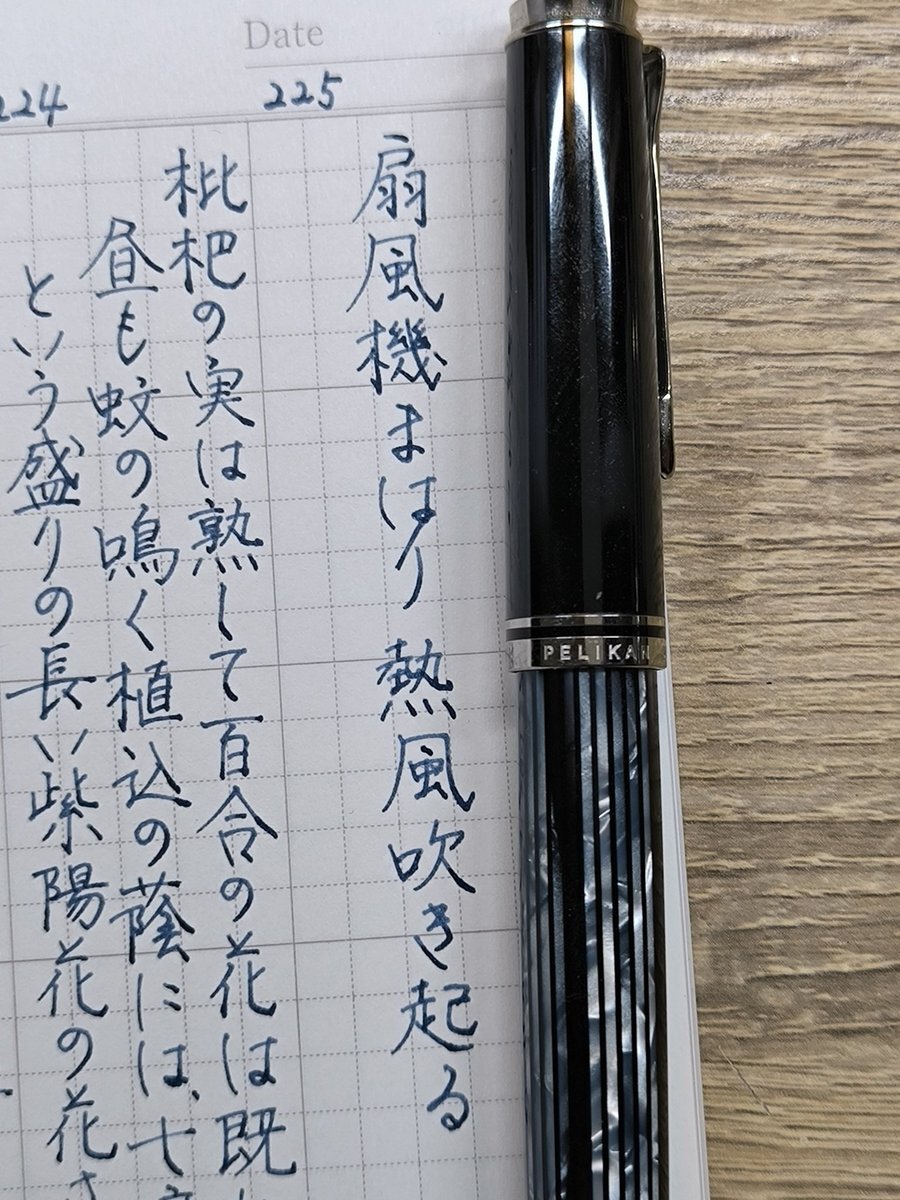 Date
224
225
扇風機まはり熱風吹き起る
枇杷の実は熟して百合の花は既
昼も蚊の鳴く植込の蔭には、七
という盛りの長い紫陽花の花
PELIKAN